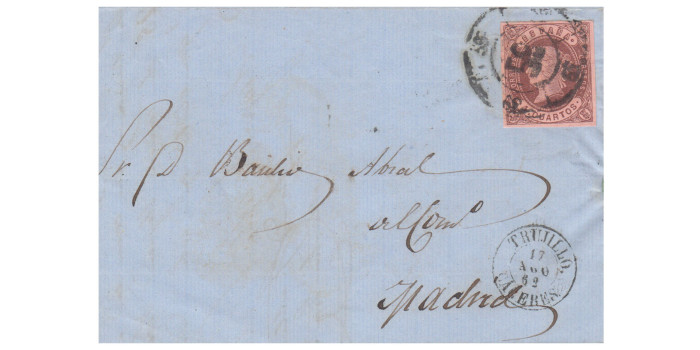 CORREOS
CUARTOS
Sr. D Basilio Abal
del Comº
Madrid
TRUJILLO.
17
AGO
62
CACERES.